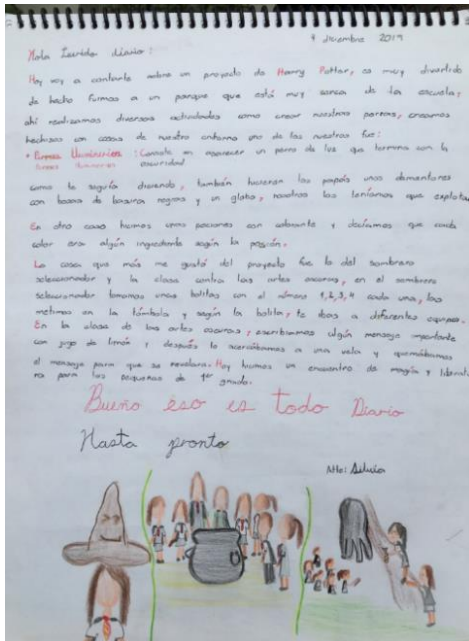 4 diciembre 2019
Hola Querido diario:
Hoy voy a contarte sobre un proyecto de Harry Potter, es muy divertido
de hecho fuimos a un parque que está muy cerca de la escuela,
ahí realizamos diversas actividades como crear nuestras pociones, creamos
hechizos con cosas de nuestro entorno uno de los nuestros fue:
: Consiste en aparecer un perro de luz que termina con la
oscuridad
como te seguía diciendo, también hicieron los papás unos dementores
con bolsas de basura negras y un globo, nosotros los teníamos que explotar
En otro caso hicimos unas pociones con colorante y decíamos que cada
color era algún ingrediente según la poción.
La cosa que más me gustó del proyecto fue lo del sombrero
seleccionador y la clase contra las artes oscuras, en el sombrero
seleccionador tomamos unas bolitas con el número 1,2,3,4 cada una, las
metimos en la tómbola y según la bolita, te ibas a diferentes equipos.
En la clase de las artes oscuras, escribíamos algún mensaje importante
con jugo de limón y después lo acercábamos a una vela y quemábamos
el mensaje para que se revelara. Hoy hicimos un encuentro de magia y literatu
ra para los pequeños de 1er grado.
Bueno eso es todo Diario
Hasta pronto
Atte: Silvia